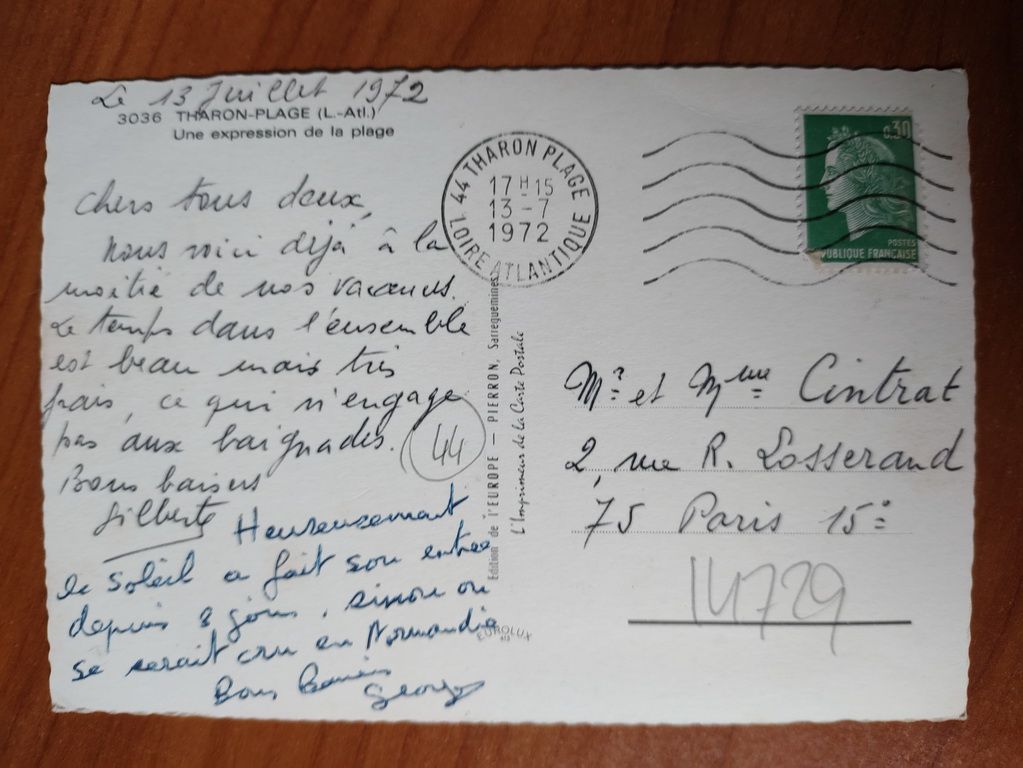 Le 13 Juillet 1972
3036 THARON-PLAGE (L.-Atl.)
Une expression de la plage
Chers tous deux,
Nous voici déjà à la
moitié de nos vacances.
Le temps dans l'ensemble
est beau mais très
frais, ce qui n'engage
pas aux baignades.
Bons baisers
Gilberte
Heureusement
le soleil a fait son entrée
depuis 8 jours, sinon on
se serait cru en Normandie
Bons baisers
Georges
44
44 THARON PLAGE
17 H 15
13 - 7
1972
LOIRE ATLANTIQUE
Edition de l'EUROPE — PIERRON, Sarreguemines
L'Imprimeur de la Carte Postale
EUROLUX
0,30
POSTES
PUBLIQUE FRANÇAISE
Mr et Mme Cintrat
2, rue R. Losserand
75 Paris 15e
14729